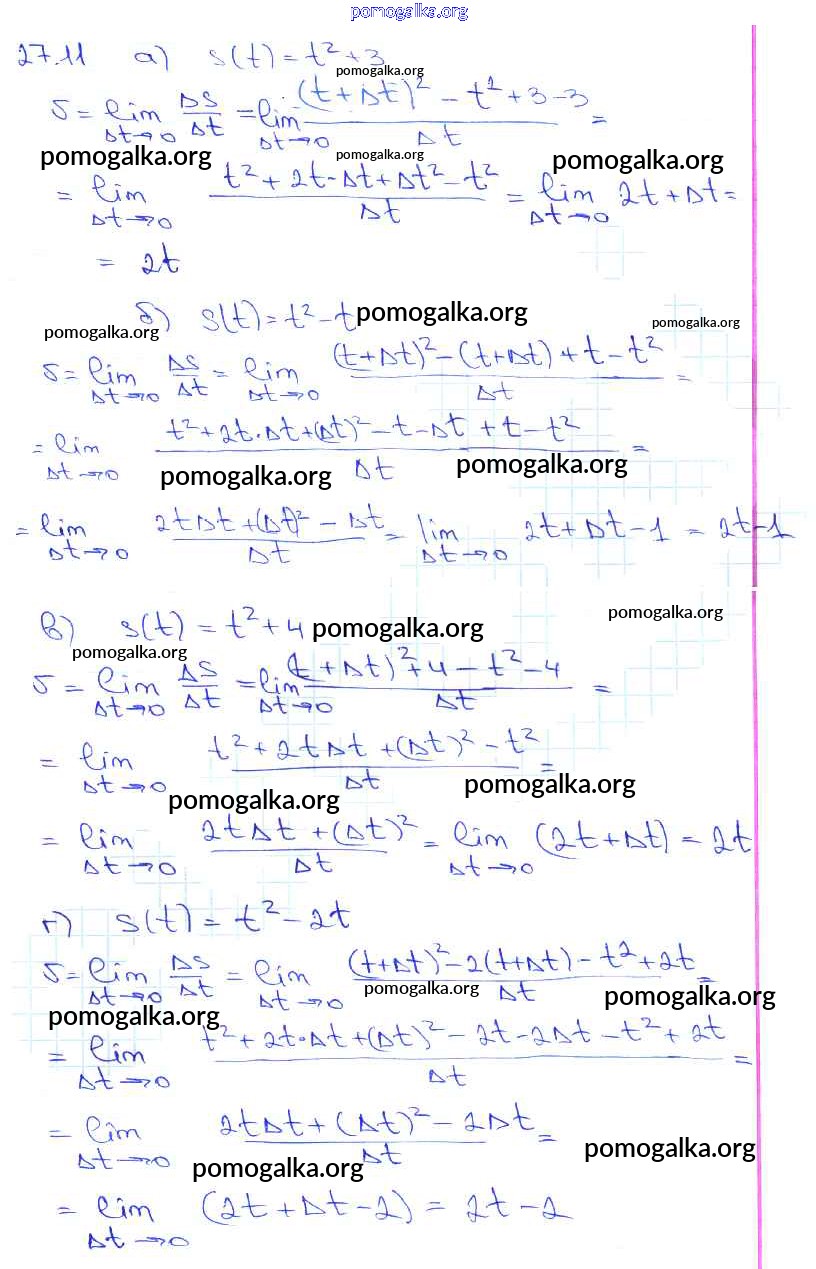 pomogalka.org
27.11 а) s(t) = t² + 3
pomogalka.org
υ = lim Δt→0 ΔS/Δt = lim Δt→0 ((t+Δt)² - t² + 3 - 3)/Δt =
pomogalka.org pomogalka.org pomogalka.org
= lim Δt→0 (t² + 2t·Δt + Δt² - t²)/Δt = lim Δt→0 2t + Δt =
= 2t
б) s(t) = t² - t pomogalka.org
pomogalka.org pomogalka.org
υ = lim Δt→0 ΔS/Δt = lim Δt→0 ((t+Δt)² - (t+Δt) + t - t²)/Δt =
= lim Δt→0 (t² + 2t·Δt + (Δt)² - t - Δt + t - t²)/Δt =
pomogalka.org pomogalka.org
= lim Δt→0 (2tΔt + (Δt)² - Δt)/Δt = lim Δt→0 2t + Δt - 1 = 2t - 1
в) s(t) = t² + 4 pomogalka.org pomogalka.org
pomogalka.org
υ = lim Δt→0 ΔS/Δt = lim Δt→0 ((t+Δt)² + 4 - t² - 4)/Δt =
= lim Δt→0 (t² + 2tΔt + (Δt)² - t²)/Δt =
pomogalka.org pomogalka.org
= lim Δt→0 (2tΔt + (Δt)²)/Δt = lim Δt→0 (2t + Δt) = 2t
г) s(t) = t² - 2t
υ = lim Δt→0 ΔS/Δt = lim Δt→0 ((t+Δt)² - 2(t+Δt) - t² + 2t)/Δt =
pomogalka.org pomogalka.org pomogalka.org
= lim Δt→0 (t² + 2t·Δt + (Δt)² - 2t - 2Δt - t² + 2t)/Δt =
= lim Δt→0 (2tΔt + (Δt)² - 2Δt)/Δt =
pomogalka.org pomogalka.org
= lim Δt→0 (2t + Δt - 2) = 2t - 2